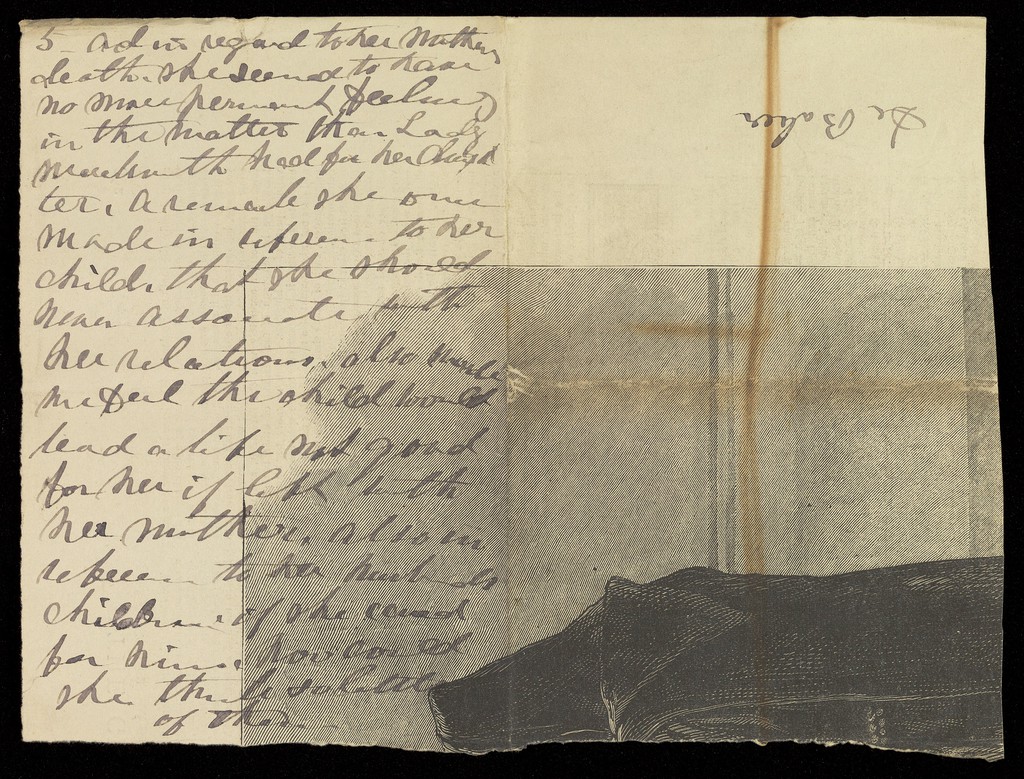 5 - ad in regard to her mother
death. she seemed to have
no more permant feeling
in the matter than Lady
had for her
ter. A remark she once
made in to her
child. that she should
never associate with
her relations. also made
me feel the child would
lead a life not good
for her if left with
her mother. also in
to her husbands
children if she cared
for him. how could
she think so little
of them
Dr Baker